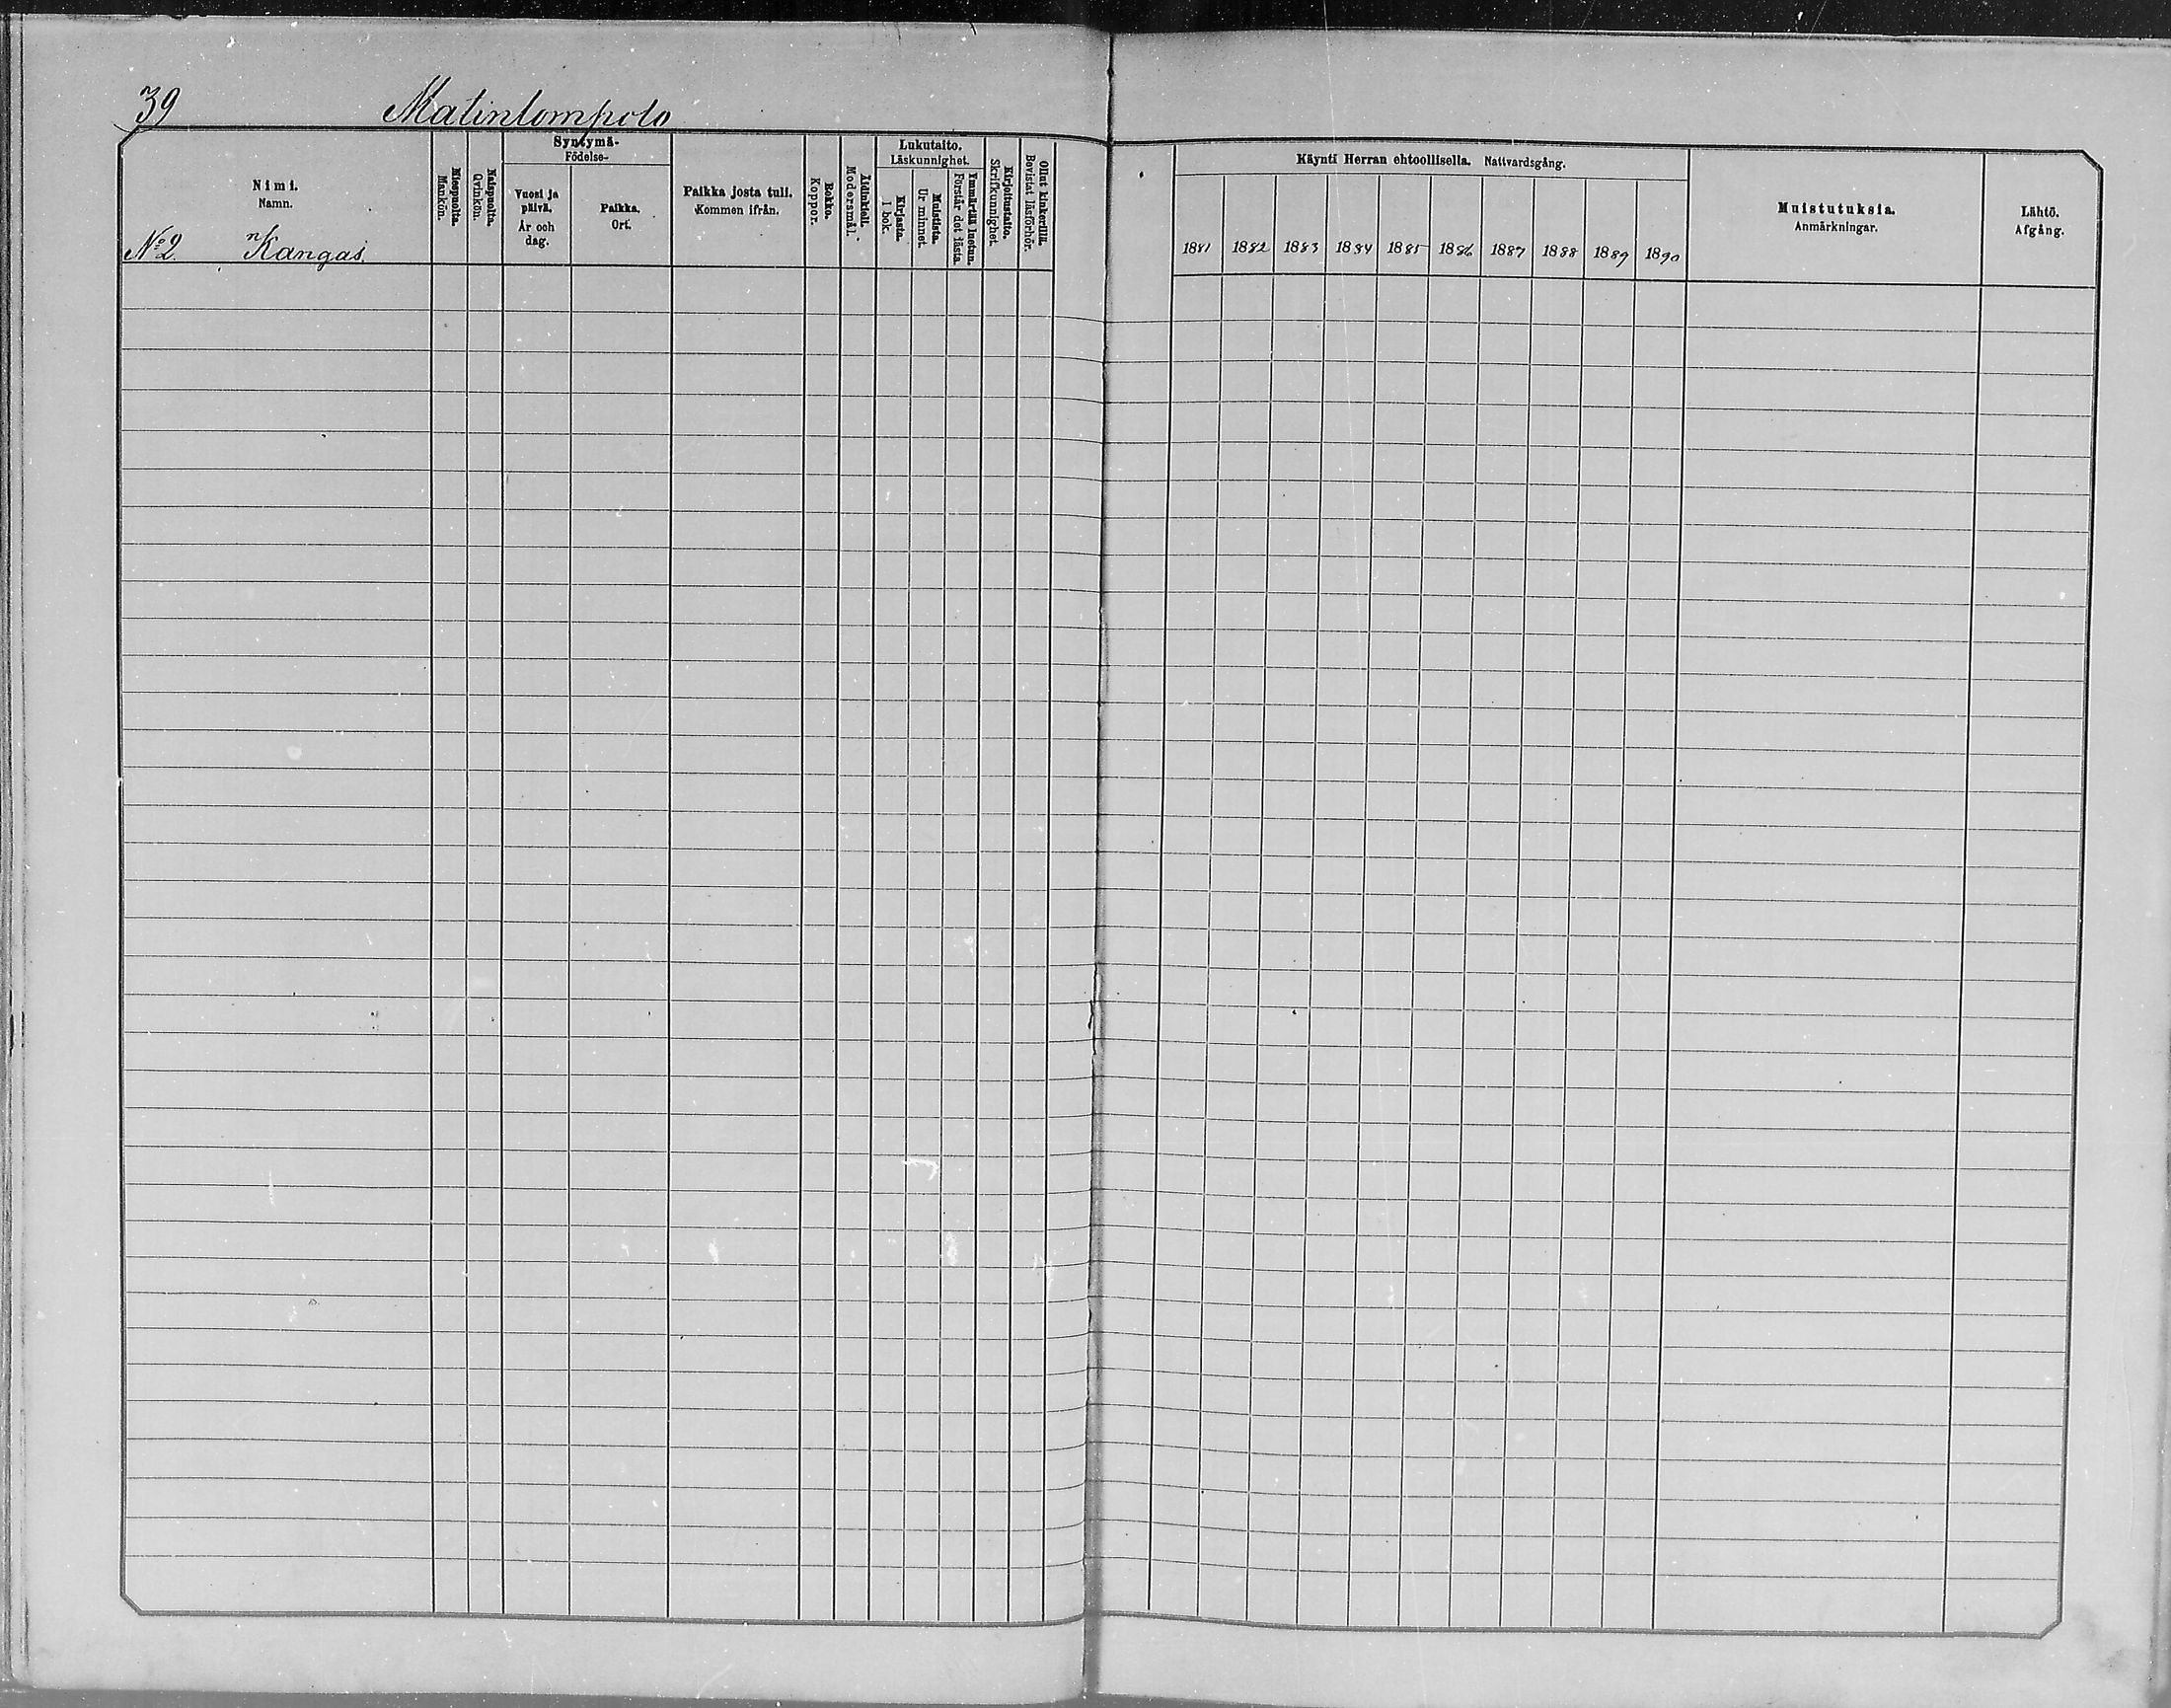 39 Matinlompolo
Nimi.
Namn.
No 2 n/Kangas
Miespuolta.
Mankön.
Naispuolta.
Qvinkön.
Syntymä-
Födelse-
Vuosi ja
päivä.
År och
dag.
Paikka.
Ort.
Paikka josta tuli.
Kommen ifrån.
Rokko.
Koppor.
Äidinkieli.
Modersmål.
Lukutaito.
Läskunnighet.
Kirjasta.
I bok.
Muistista.
Ur minnet.
Ymmärtää luetun.
Förstår det lästa.
Kirjoitustaito.
Skrifkunnighet.
Ollut kinkerillä.
Bevistat läsförhör.
Käynti Herran ehtoollisella. Nattvardsgång.
1881 1882 1883 1884 1885 1886 1887 1888 1889 1890
Muistutuksia.
Anmärkningar.
Lähtö.
Afgång.